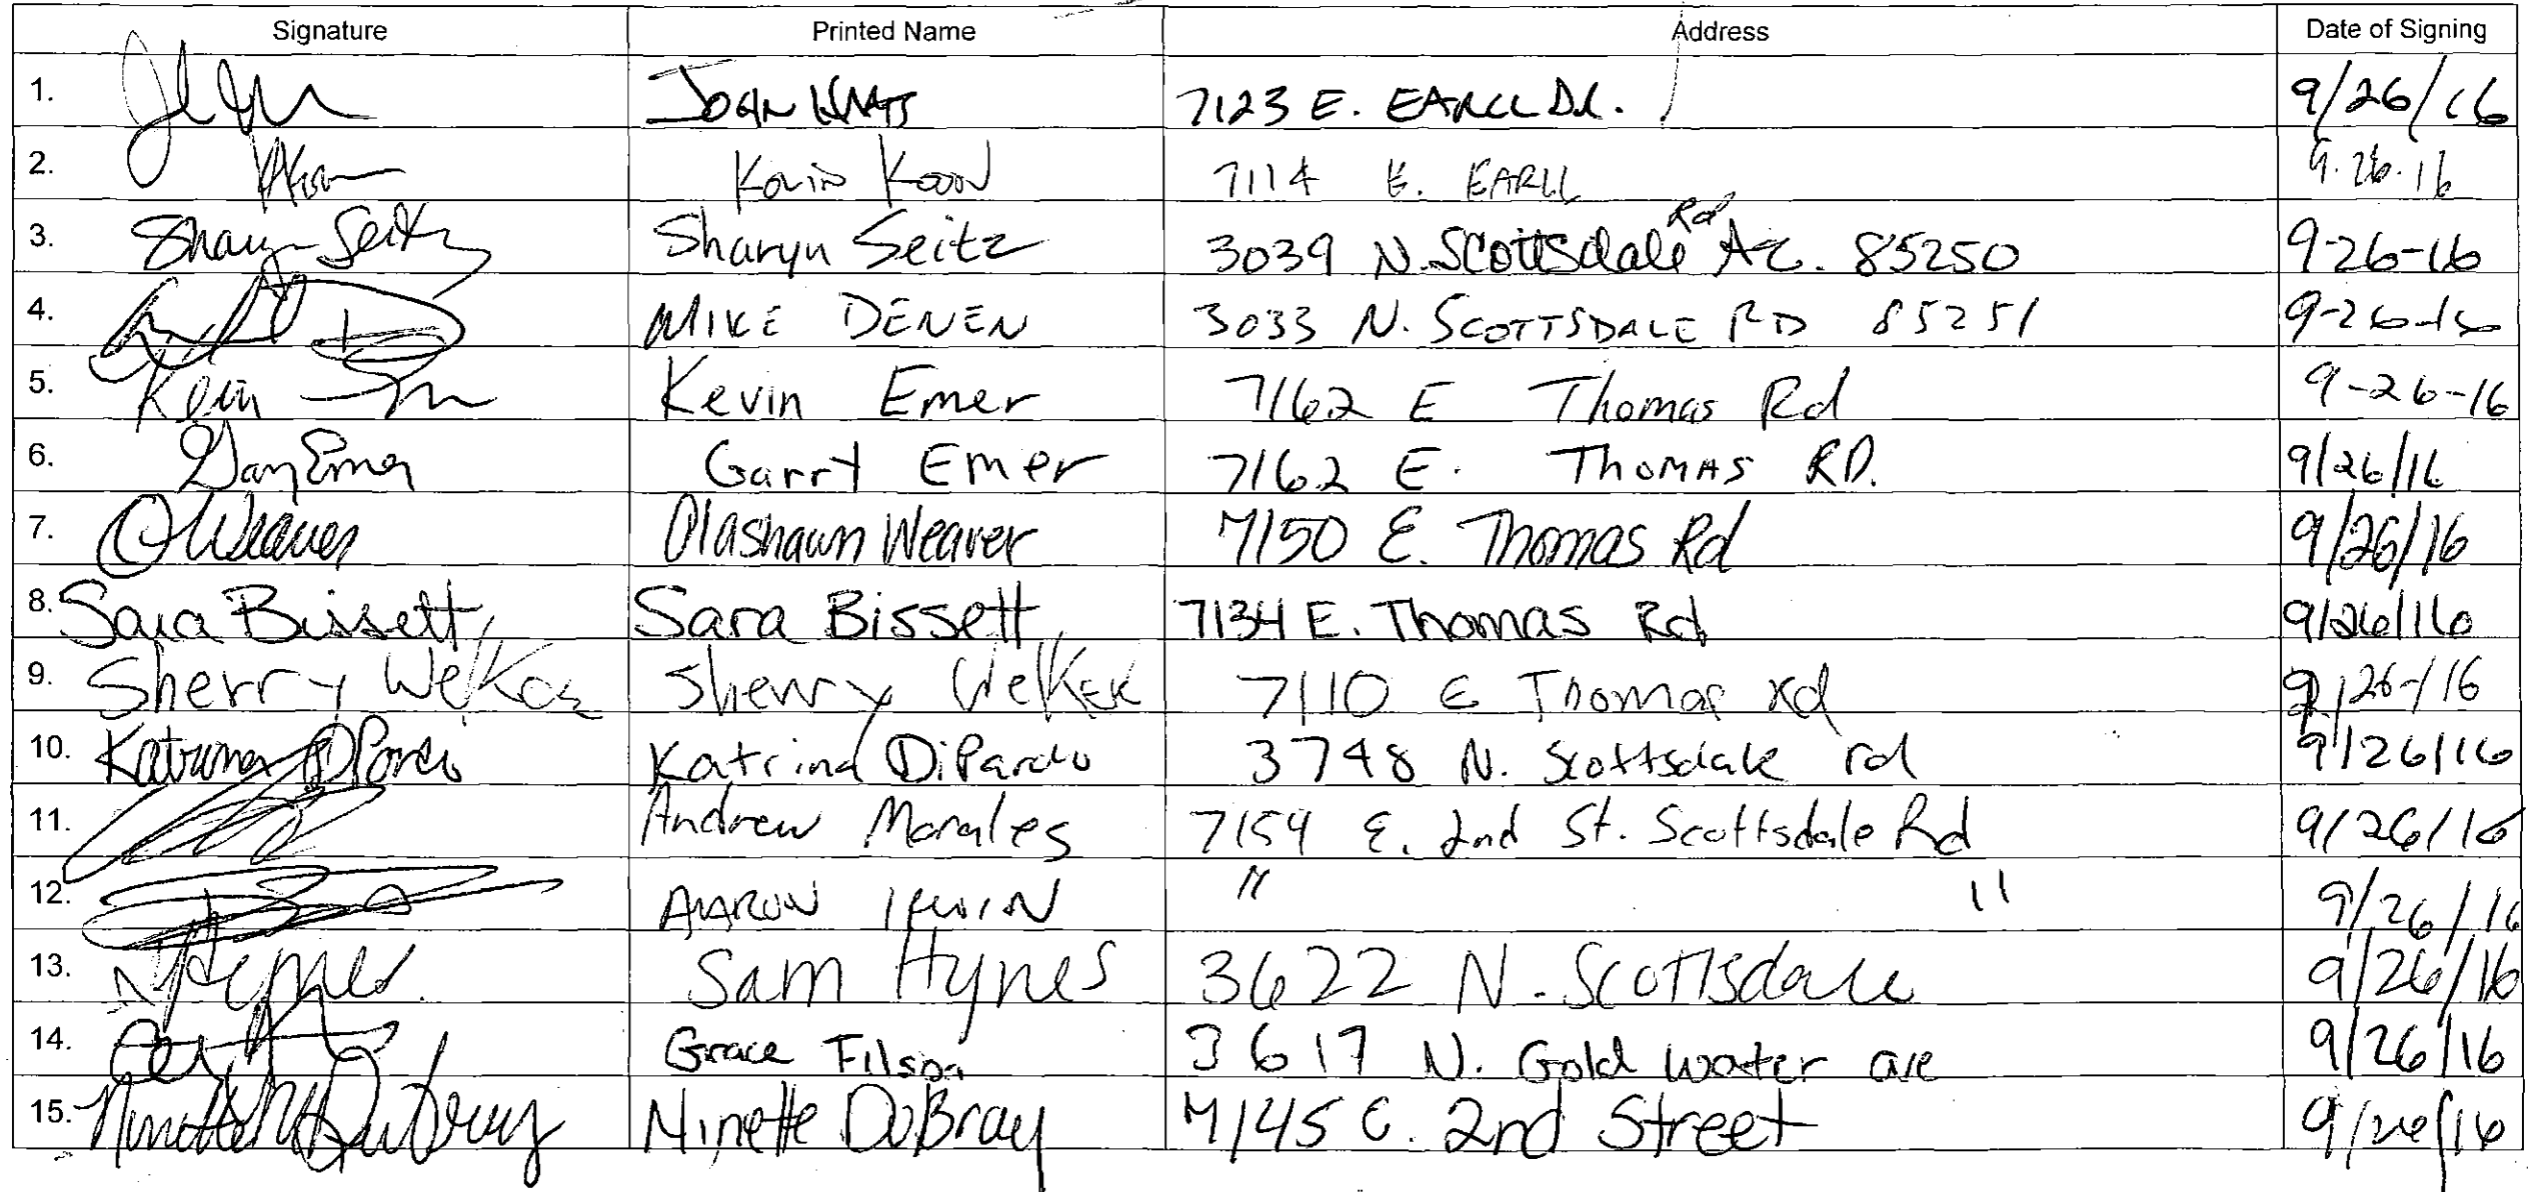 Signature Printed Name Address Date of Signing
1. JOHN 7123 E. EARLL DR. 9/26/16
2. Kevin Koon 7114 E. EARLL 9.26.16
3. Sharyn Seitz Sharyn Seitz 3039 N. Scottsdale Rd Az. 85250 9-26-16
4. MIKE DENEN 3033 N. SCOTTSDALE RD 85251 9-26-16
5. Kevin Kevin Emer 7162 E Thomas Rd 9-26-16
6. Garry Emer Garry Emer 7162 E. THOMAS RD. 9/26/16
7. OWeaver Olashawn Weaver 7150 E. Thomas Rd 9/26/16
8. Sara Bissett Sara Bissett 7134 E. Thomas Rd 9/26/16
9. Sherry Welker Sherry Welker 7110 E Thomas Rd 9/26/16
10. Katrina DiPardo Katrina DiPardo 3748 N. Scottsdale rd 9/26/16
11. Andrew Morales 7154 E. 2nd St. Scottsdale Rd 9/26/16
12. AARON " " 9/26/16
13. Sam Hynes 3622 N. Scottsdale 9/26/16
14. Grace 3617 N. Gold water ave 9/26/16
15. Ninette DuBray Ninette DuBray 7145 E. 2nd Street 9/26/16